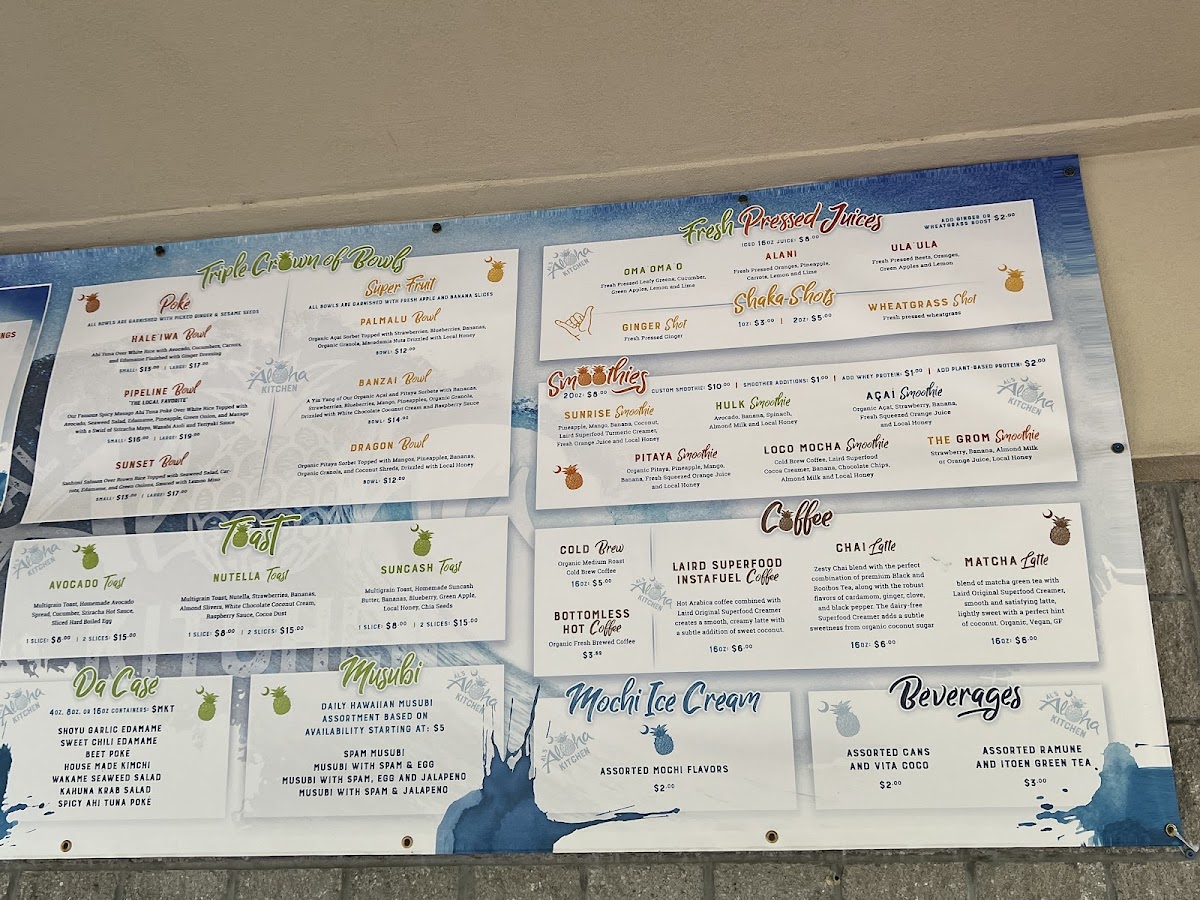 NGS
Triple Crown of Bowls
Poke
ALL BOWLS ARE GARNISHED WITH PICKED GINGER & SESAME SEEDS
HALEIWA Bowl
Ahi Tuna Over White Rice with Avocado, Cucumbers, Carrots,
and Edamame Finished with Ginger Dressing
SMALL: $15.00 | LARGE: $17.00
PIPELINE Bowl
"THE LOCAL FAVORITE"
Our Famous Spicy Masago Ahi Tuna Poké Over White Rice Topped with
Avocado, Seaweed Salad, Edamame, Pineapple, Green Onion, and Mango
with a Swirl of Sriracha Mayo, Wasabi Aioli and Teriyaki Sauce
SMALL: $16.00 | LARGE: $19.00
SUNSET Bowl
Sashimi Salmon Over Brown Rice Topped with Seaweed Salad, Car-
rots, Edamame, and Green Onions, Sauced with Lemon Miso
SMALL: $15.00 | LARGE: $17.00
Aloha
KITCHEN
Super Fruit
ALL BOWLS ARE GARNISHED WITH FRESH APPLE AND BANANA SLICES
PALMALU Bowl
Organic Açai Sorbet Topped with Strawberries, Blueberries, Bananas,
Organic Granola, Macadamia Nuts Drizzled with Local Honey
BOWL: $12.00
BANZAI Bowl
A Yin Yang of Our Organic Açai and Pitaya Sorbets with Bananas,
Strawberries, Blueberries, Mango, Pineapples, Organic Granola,
Drizzled with White Chocolate Coconut Cream and Raspberry Sauce
BOWL: $14.00
DRAGON Bowl
Organic Pitaya Sorbet Topped with Mangos, Pineapples, Bananas,
Organic Granola, and Coconut Shreds, Drizzled with Local Honey
BOWL: $12.00
Toast
Aloha
KITCHEN
AVOCADO Toast
Multigrain Toast, Homemade Avocado
Spread, Cucumber, Sriracha Hot Sauce,
Sliced Hard Boiled Egg
1 SLICE: $8.00 | 2 SLICES: $15.00
NUTELLA Toast
Multigrain Toast, Nutella, Strawberries, Bananas,
Almond Slivers, White Chocolate Coconut Cream,
Raspberry Sauce, Cocoa Dust
1 SLICE: $8.00 | 2 SLICES: $15.00
SUNCASH Toast
Multigrain Toast, Homemade Suncash
Butter, Bananas, Blueberry, Green Apple,
Local Honey, Chia Seeds
1 SLICE: $8.00 | 2 SLICES: $15.00
Da Case
Aloha
KITCHEN
4OZ, 8OZ, OR 16OZ CONTAINERS: $MKT
SHOYU GARLIC EDAMAME
SWEET CHILI EDAMAME
BEET POKE
HOUSE MADE KIMCHI
WAKAME SEAWEED SALAD
KAHUNA KRAB SALAD
SPICY AHI TUNA POKE
Musubi
AL'S
Aloha
KITCHEN
DAILY HAWAIIAN MUSUBI
ASSORTMENT BASED ON
AVAILABILITY STARTING AT: $5
SPAM MUSUBI
MUSUBI WITH SPAM & EGG
MUSUBI WITH SPAM, EGG AND JALAPENO
MUSUBI WITH SPAM & JALAPENO
Fresh Pressed Juices
ICED 16OZ JUICE: $8.00
ADD GINGER OR
WHEATGRASS BOOST $2.00
Aloha
KITCHEN
OMA OMA O
Fresh Pressed Leafy Greens, Cucumber,
Green Apples, Lemon and Lime
ALANI
Fresh Pressed Oranges, Pineapple,
Carrots, Lemon and Lime
ULA'ULA
Fresh Pressed Beets, Oranges,
Green Apples and Lemon
Shaka Shots
1OZ: $3.00 | 2OZ: $5.00
GINGER Shot
Fresh Pressed Ginger
WHEATGRASS Shot
Fresh pressed wheatgrass
Smoothies
20OZ: $8.00
CUSTOM SMOOTHIE: $10.00 | SMOOTHIE ADDITIONS: $1.00 | ADD WHEY PROTEIN: $1.00 | ADD PLANT-BASED PROTEIN: $2.00
SUNRISE Smoothie
Pineapple, Mango, Banana, Coconut,
Laird Superfood Turmeric Creamer,
Fresh Orange Juice and Local Honey
HULK Smoothie
Avocado, Banana, Spinach,
Almond Milk and Local Honey
AÇAI Smoothie
Organic Açai, Strawberry, Banana,
Fresh Squeezed Orange Juice
and Local Honey
Aloha
KITCHEN
PITAYA Smoothie
Organic Pitaya, Pineapple, Mango,
Banana, Fresh Squeezed Orange Juice
and Local Honey
LOCO MOCHA Smoothie
Cold Brew Coffee, Laird Superfood
Cocoa Creamer, Banana, Chocolate Chips,
Almond Milk and Local Honey
THE GROM Smoothie
Strawberry, Banana, Almond Milk
or Orange Juice, Local Honey
Coffee
COLD Brew
Organic Medium Roast
Cold Brew Coffee
16OZ: $5.00
BOTTOMLESS
HOT Coffee
Organic Fresh Brewed Coffee
$3.99
Aloha
KITCHEN
LAIRD SUPERFOOD
INSTAFUEL Coffee
Hot Arabica coffee combined with
Laird Original Superfood Creamer
creates a smooth, creamy latte with
a subtle addition of sweet coconut.
16OZ: $6.00
CHAI Latte
Zesty Chai blend with the perfect
combination of premium Black and
Rooibos Tea, along with the robust
flavors of cardamom, ginger, clove,
and black pepper. The dairy-free
Superfood Creamer adds a subtle
sweetness from organic coconut sugar
16OZ: $6.00
MATCHA Latte
blend of matcha green tea with
Laird Original Superfood Creamer,
smooth and satisfying latte,
lightly sweet with a perfect hint
of coconut. Organic, Vegan, GF
16OZ: $6.00
Mochi Ice Cream
AL'S
Aloha
KITCHEN
ASSORTED MOCHI FLAVORS
$2.00
Beverages
AL'S
Aloha
KITCHEN
ASSORTED CANS
AND VITA COCO
$2.00
ASSORTED RAMUNE
AND ITOEN GREEN TEA
$3.00